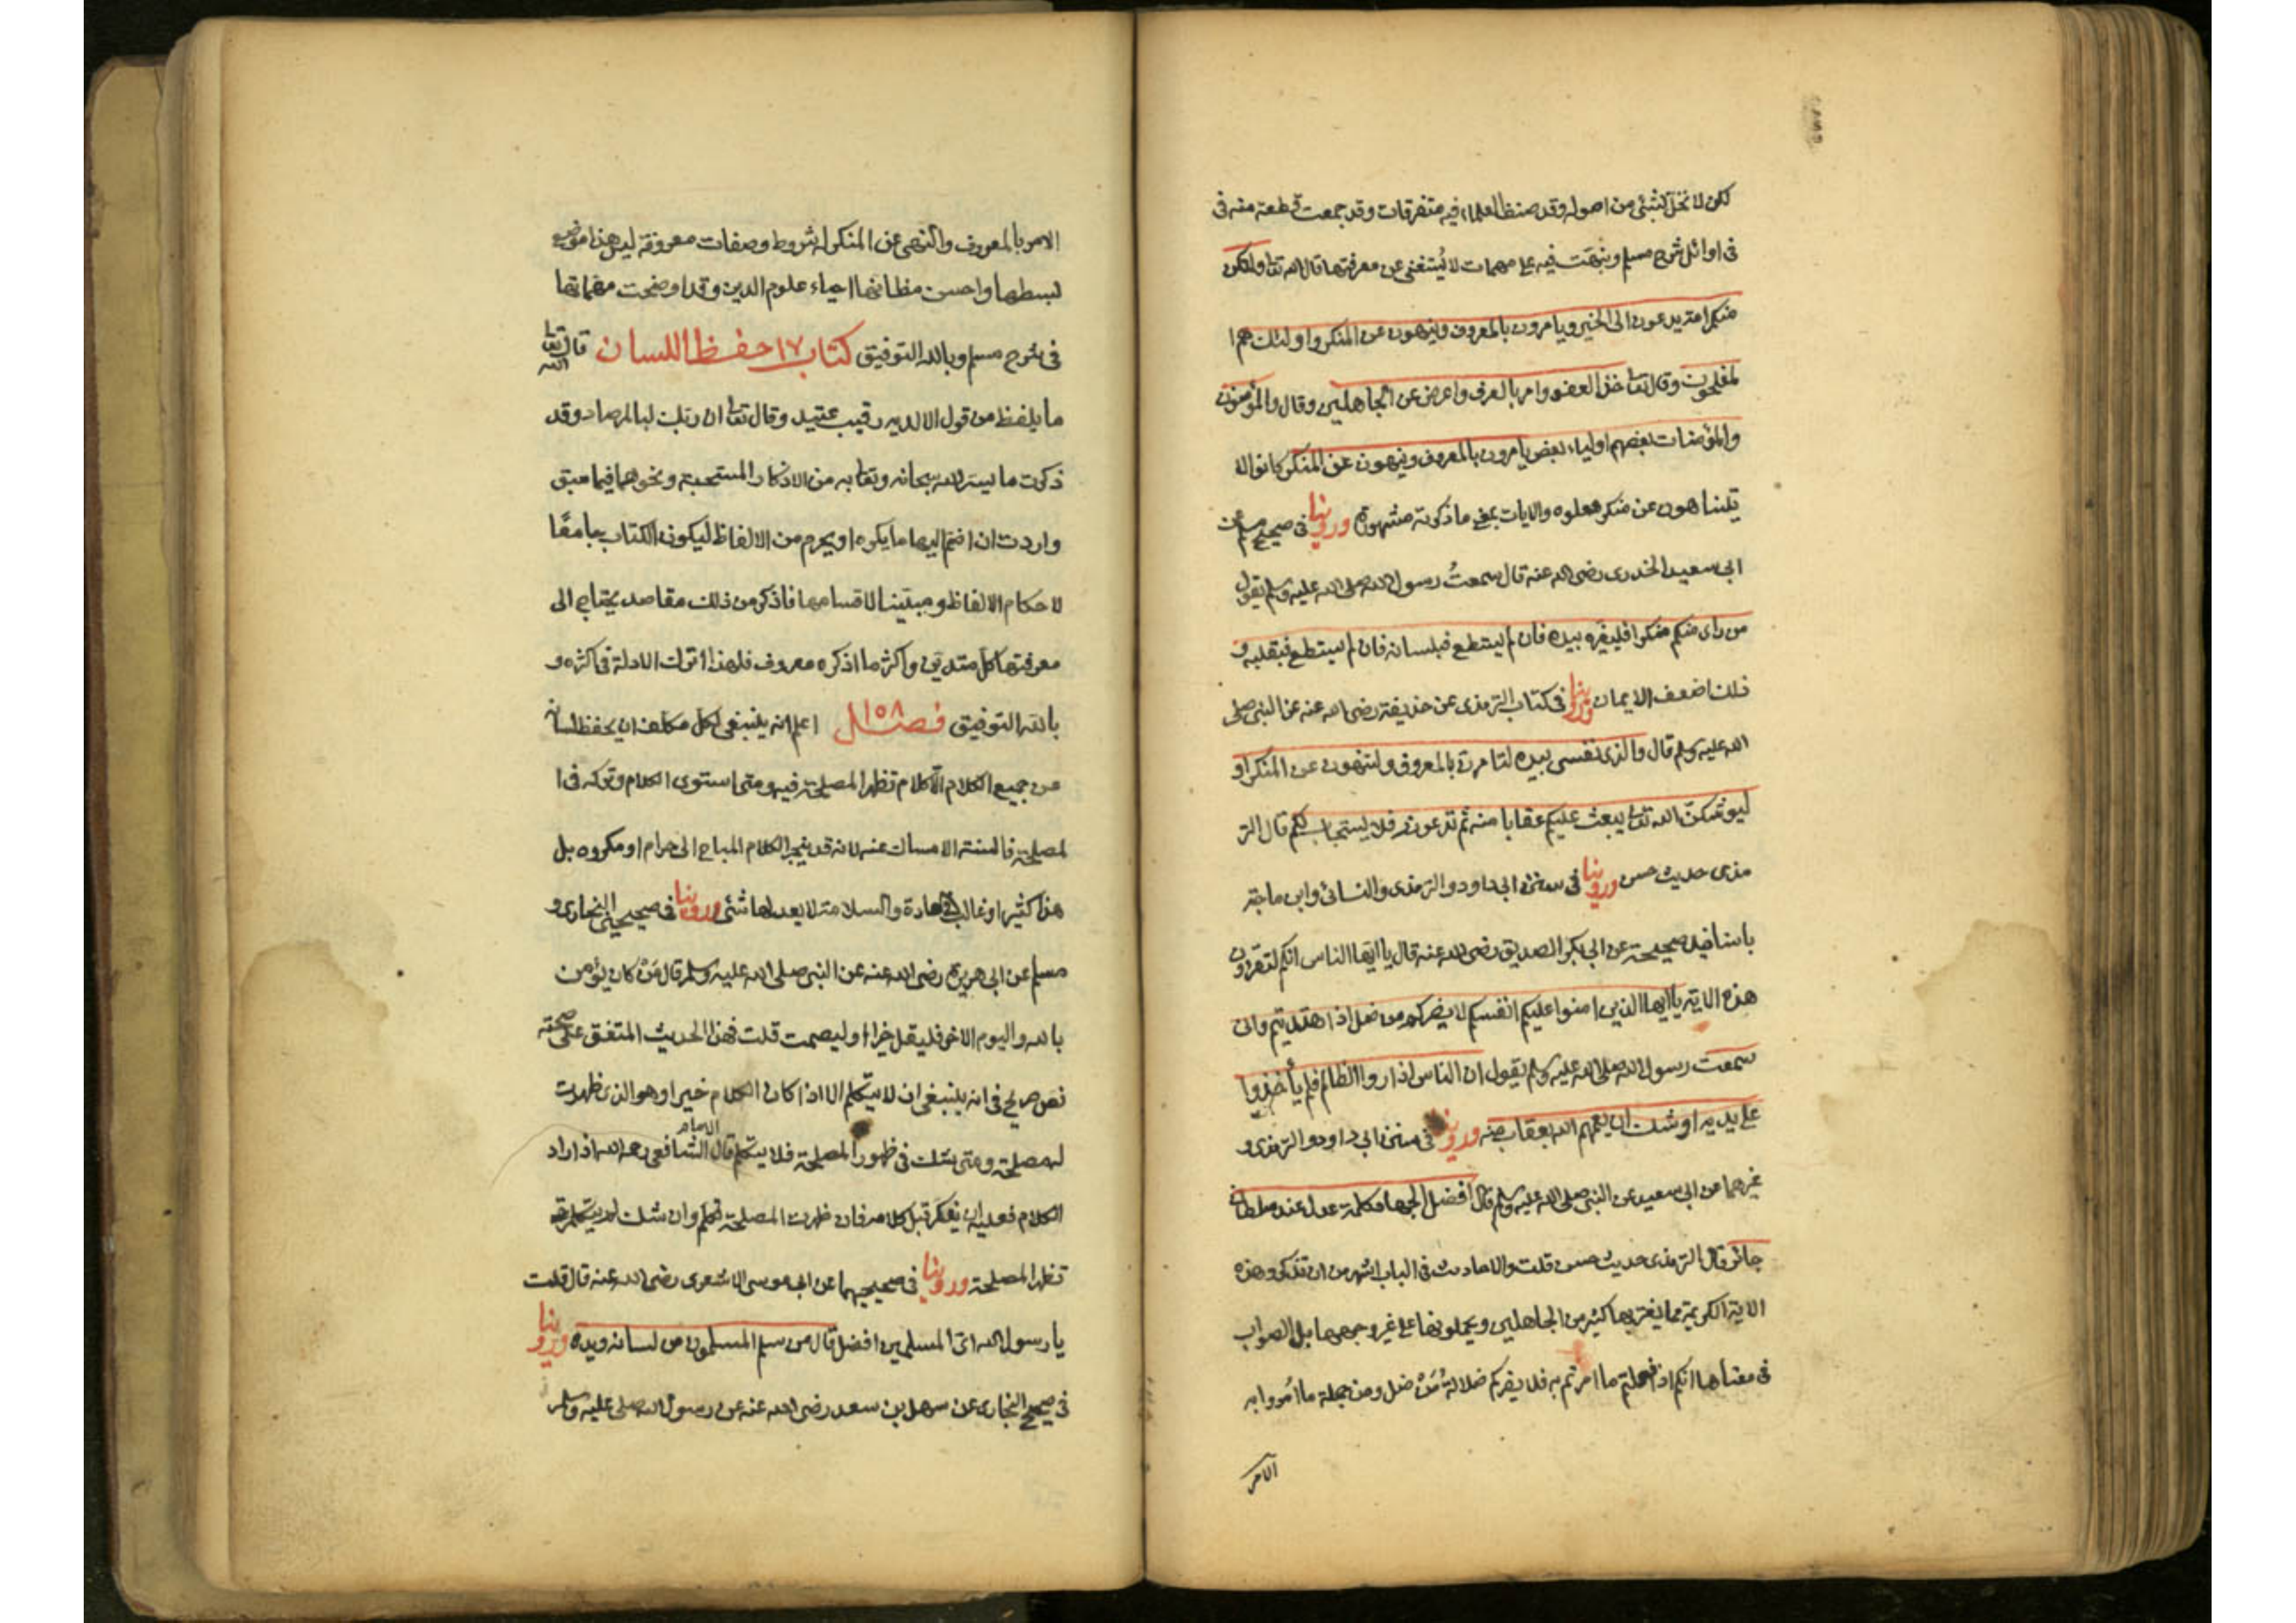 لكن لا نخل بشئ من اصوله وقد صنف العلماء فيه متفرقات وقد جمعت قطعة منه فى
فى اوائل شرح مسلم ونبهت فيه على مهمات لا يُستغنى عن معرفتها قال الله تعا ولتكن
منكم امة يدعون الى الخير ويامرون بالمعروف وينهون عن المنكر واولئك هم ا
لمفلحون وقال تعا خذ العفو وامر بالعرف واعرض عن الجاهلين وقال والمؤمنون
والمؤمنات بعضهم اولياء بعض يامرون بالمعروف وينهون عن المنكر كانوا لا
يتناهون عن منكر فعلوه والايات بمعنى ما ذكرته مشهورة وروينا فى صحيح مسلم عن
ابى سعيد الخدرى رضى الله عنه قال سمعتُ رسول الله صلى الله عليه وسلم يقول
من راى منكم منكرا فليغيره بيده فان لم يستطع فبلسانه فان لم يستطع فبقلبه و
ذلك اضعف الايمان وروينا فى كتاب الترمذى عن حذيفة رضى الله عنه عن النبى صلى
الله عليه وسلم قال والذى نفسى بيده لتامرن بالمعروف ولتنهون عن المنكر او
ليوشكنّ الله تعا يبعث عليكم عقابا منه ثم تدعونه فلا يستجاب لكم قال التر
مذى حديث حسن وروينا فى سنن ابى داود والترمذى والنسائى وابن ماجة
باسانيد صحيحة عن ابى بكر الصديق رضى الله عنه قال يا ايها الناس انكم لتقرؤن
هذه الاية يا ايها الذين امنوا عليكم انفسكم لا يضركم من ضل اذا اهتديتم وانى
سمعت رسول الله صلى الله عليه وسلم يقول ان الناس اذا راوا الظالم فلم يأخذوا
على يديه اوشك ان يعمهم الله بعقاب منه وروينا فى سنن ابى داود والترمذى و
غيرهما عن ابى سعيد عن النبى صلى الله عليه وسلم قال افضل الجهاد كلمة عدل عند سلطان
جائر قال الترمذى حديث حسن قلت والاحاديث فى الباب اشهر من ان تذكر وهذه
الاية الكريمة مما يغتر بها كثير من الجاهلين ويحملونها على غير وجهها بل الصواب
فى معناها انكم اذا فعلتم ما امرتم به فلا يضركم ضلالةُ مَنْ ضل ومن جملة ما امروا به
الامر
الامر بالمعروف والنهى عن المنكر له شروط وصفات معروفة ليس هذا موضع
لبسطها واحسن مظانها احياء علوم الدين وقد اوضحت مهماتها
فى شرح مسلم وبالله التوفيق كتاب ١٧ حفظ اللسان قال الله تعا
ما يلفظ من قول الا لديه رقيب عتيد وقال تعا ان ربك لبالمرصاد وقد
ذكرت ما يسر الله سبحانه وتعا به من الاذكار المستحبة ونحوها فيما سبق
واردت ان اضم اليها ما يكره او يحرم من الالفاظ ليكون الكتاب جامعًا
لاحكام الالفاظ ومبيّنا لاقسامها فاذكر من ذلك مقاصد يحتاج الى
معرفتها كل متدين واكثر ما اذكره معروف فلهذا اترك الادلة فى اكثره و
بالله التوفيق فصل ١٥٨ اعلم انه ينبغى لكل مكلف ان يحفظ لسانه
عن جميع الكلام الّا كلام تظهر المصلحة فيه ومتى استوى الكلام وتركه فى ا
لمصلحة فالسنة الامساك عنه لانه قد ينجر الكلام المباح الى حرام او مكروه بل
هذا كثير او غالب فى العادة والسلامة لا يعدلها شئى وروينا فى صحيحى البخارى و
مسلم عن ابى هريرة رضى الله عنه عن النبى صلى الله عليه وسلم قال مَنْ كان يؤمن
بالله واليوم الاخر فليقل خيرا او ليصمت قلت فهذا الحديث المتفق على صحته
نص صريح فى انه ينبغى ان لا يتكلم الا اذا كان الكلام خيرا وهو الذى ظهرت
له مصلحة ومتى شك فى ظهور المصلحة فلا يتكلم قال الامام الشافعى رحمه الله اذا اراد
الكلام فعليه ان يفكر قبل كلامه فان ظهرت المصلحة تكلم وان شك لم يتكلم حتى
تظهر المصلحة وروينا فى صحيحيهما عن ابى موسى الاشعرى رضى الله عنه قال قلت
يا رسول الله اى المسلمين افضل قال من سلم المسلمون من لسانه ويده وروينا
فى صحيح البخارى عن سهل بن سعد رضى الله عنه عن رسول الله صلى عليه وسلم